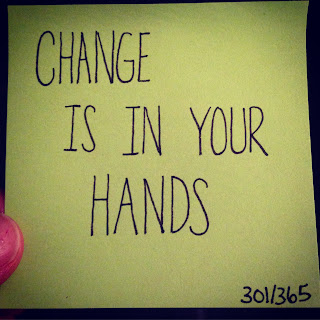 CHANGE
IS IN YOUR
HANDS
301/365